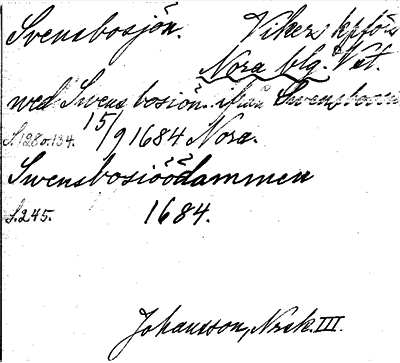 Svensbosjön. Vikers kpförs
Nora blg. Vstl.
wed Swensbosiön ifrån Swensboon
S. 128 o. 134. 15/9 1684 Nora.
Swensbosiöödammen
S. 245. 1684.
Johansson, Norsk. III.